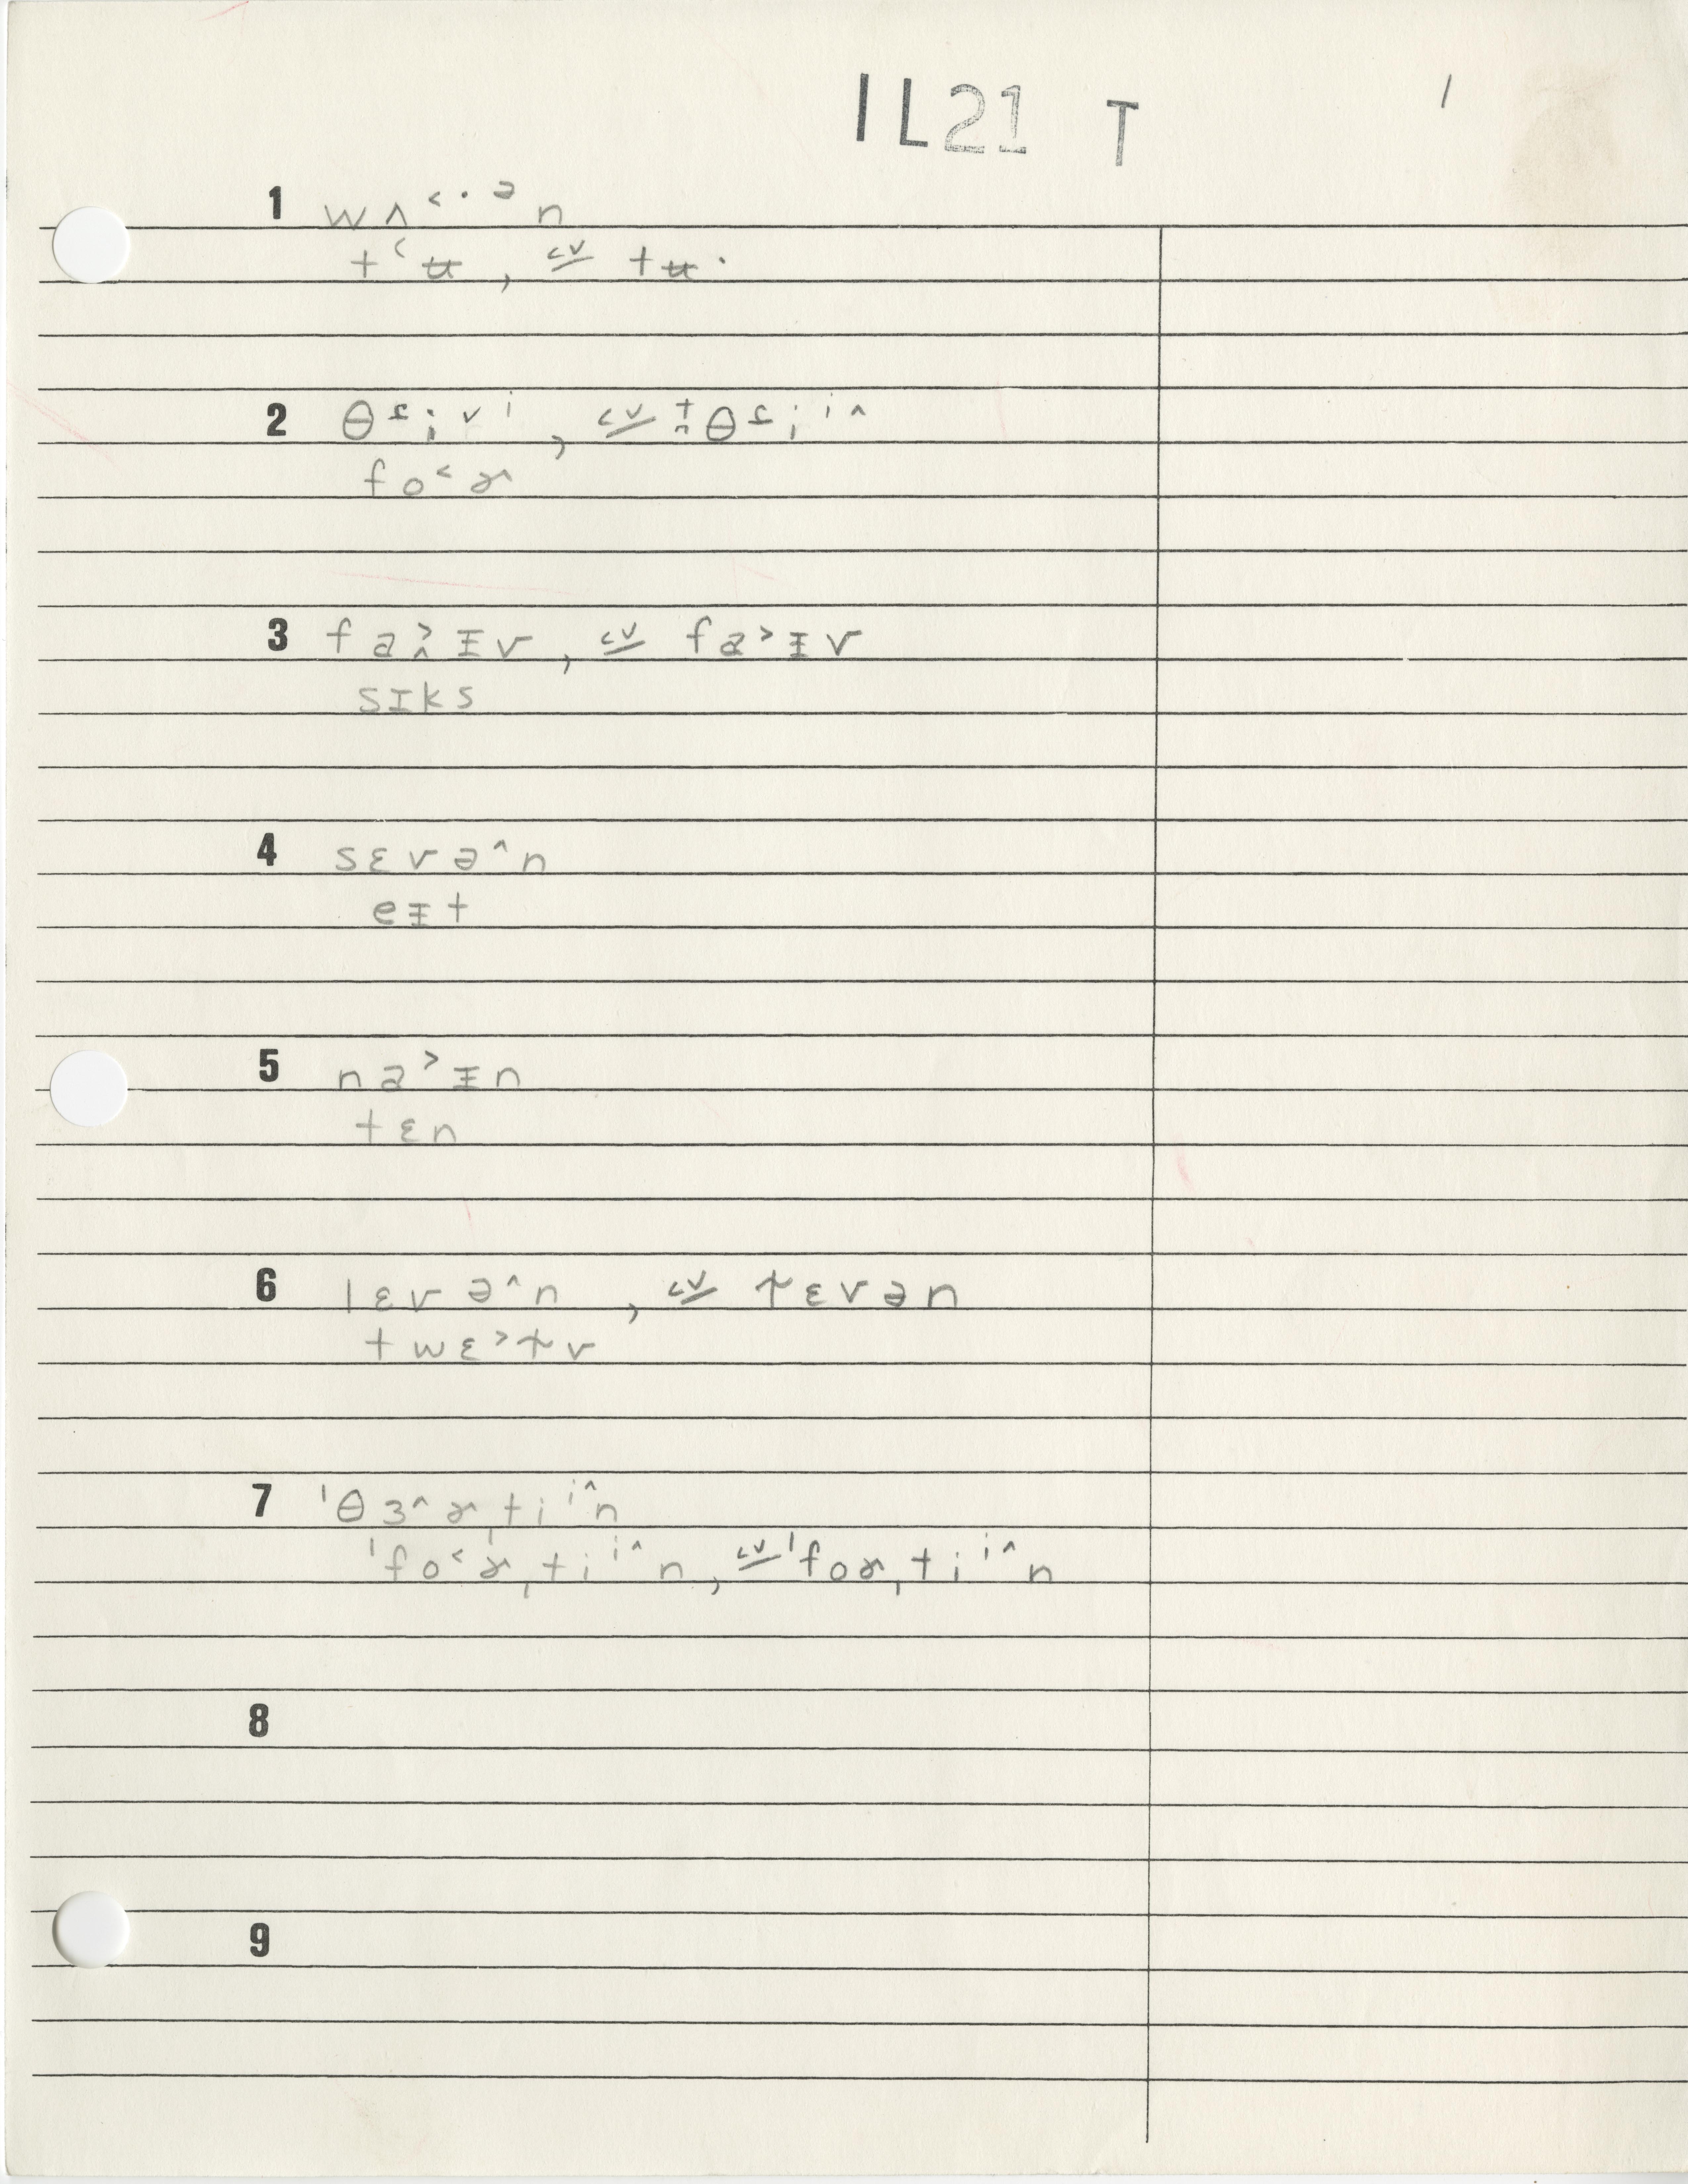 IL21 T 1
1 wʌ˂·ᵊn
t˂ʉ, cv tʉ·
2 θɾi˅ⁱ, cv θɾiⁱ˄
fo˂ɚ
3 fa˃ɪv, cv fa˃ɪv
sɪks
4 sɛvə˄n
eɪt
5 na˃ɪn
tɛn
6 lɛvə˄n, cv ɫɛvən
twɛ˃ɫv
7 ˈθɜ˄ɚtiⁱ˄n
ˈfo˂ɚˌtiⁱ˄n, cv ˈfoɚˌtiⁱ˄n
8
9